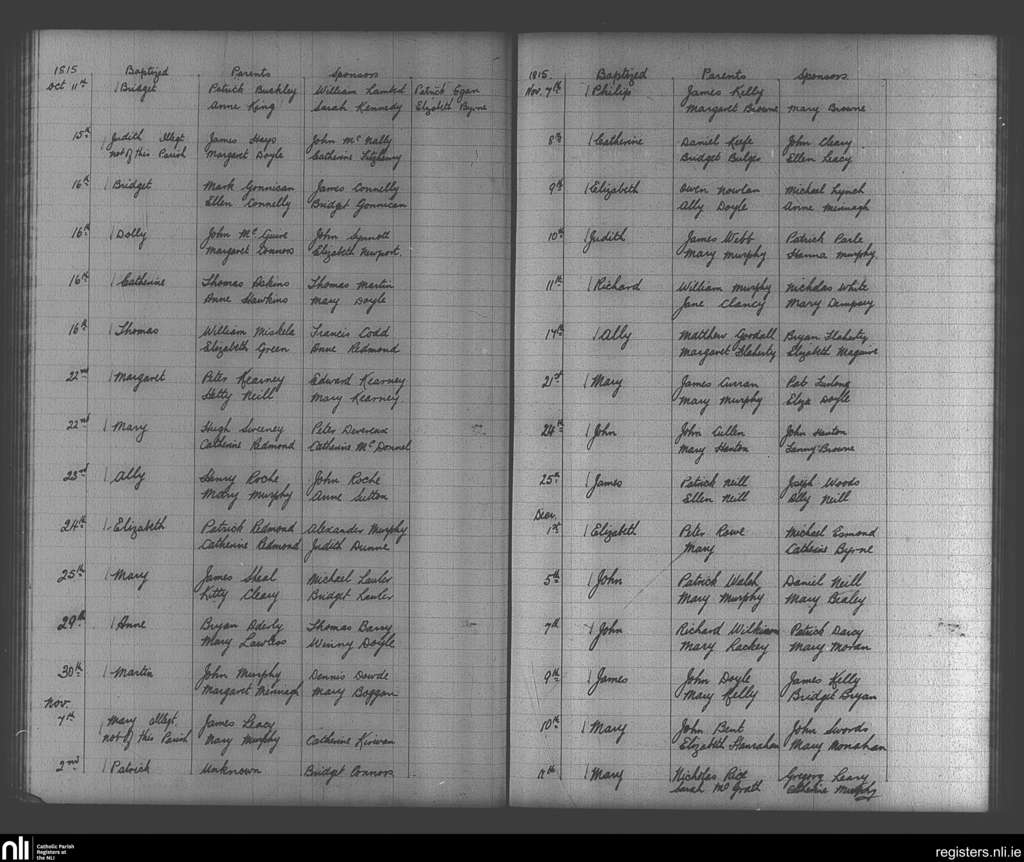 1815 Baptized Parents Sponsors
Oct 11th Bridget Patrick Buckley William Lambed Patrick Egan
Anne King Sarah Kennedy Elizabeth Byrne
15th Judith illegt. James Hays John Mc Nally
not of this Parish Margaret Doyle Catherine Fitzhenry
16th Bridget Mark Gonnican James Connelly
Ellen Connelly Bridget Gonnican
16th Dolly John Mc Guire John Synnott
Margaret Connors Elizabeth Newport.
16th Catherine Thomas Askins Thomas Martin
Anne Hawkins Mary Doyle
16th Thomas William Miskela Francis Codd
Elizabeth Green Anne Redmond
22nd Margaret Peter Kearney Edward Kearney
Hetty Neill Mary Kearney
22nd Mary Hugh Sweeney Peter Devereux
Catherine Redmond Catherine Mc Donnel
23rd Ally Henry Roche John Roche
Mary Murphy Anne Sutton
24th Elizabeth Patrick Redmond Alexander Murphy
Catherine Redmond Judith Dunne
25th Mary James Sheal Michael Lawler
Kitty Cleary Bridget Lawler
29th Anne Bryan Dderly Thomas Barry
Mary Lawless Winny Doyle
30th Martin John Murphy Dennis Dowde
Margaret Minnagh Mary Boggan
Nov.
7th Mary illegt. James Leacy
not of this Parish Mary Murphy Catherine Kirwan
2nd Patrick Unknown Bridget Connors
1815. Baptized Parents Sponsors
Nov. 7th Philip James Kelly
Margaret Browne Mary Browne
8th Catherine Daniel Keefe John Cleary
Bridget Bulger Ellen Leacy
9th Elizabeth Owen Nowlan Michael Lynch
Ally Doyle Anne Minnagh
10th Judith James Webb Patrick Parle
Mary Murphy Hanna Murphy
11th Richard William Murphy Nicholas White
Jane Clancy Mary Dempsey
14th Ally Matthew Goodall Bryan Flaherty
Margaret Flaherty Elizabeth Maguire
21st Mary James Curran Pat Furlong
Mary Murphy Eliza Doyle
24th John John Cullen John Hanton
Mary Hanton Fanny Browne
25th James Patrick Neill Joseph Woods
Ellen Neill Ally Neill
Decr.
1st Elizabeth Peter Rowe Michael Esmond
Mary Catherine Byrne
5th John Patrick Walsh Daniel Neill
Mary Murphy Mary Bialey
7th John Richard Wilkinson Patrick Darcy
Mary Rackey Mary Moran
9th James John Doyle James Kelly
Mary Kelly Bridget Bryan
10th Mary John Bent John Swords
Elizabeth Hanrahan Mary Monahan
11th Mary Nicholas Rice Gregory Leary
Sarah Mc Grath Catherine Murphy
nli Catholic Parish
Registers at
the NLI
registers.nli.ie